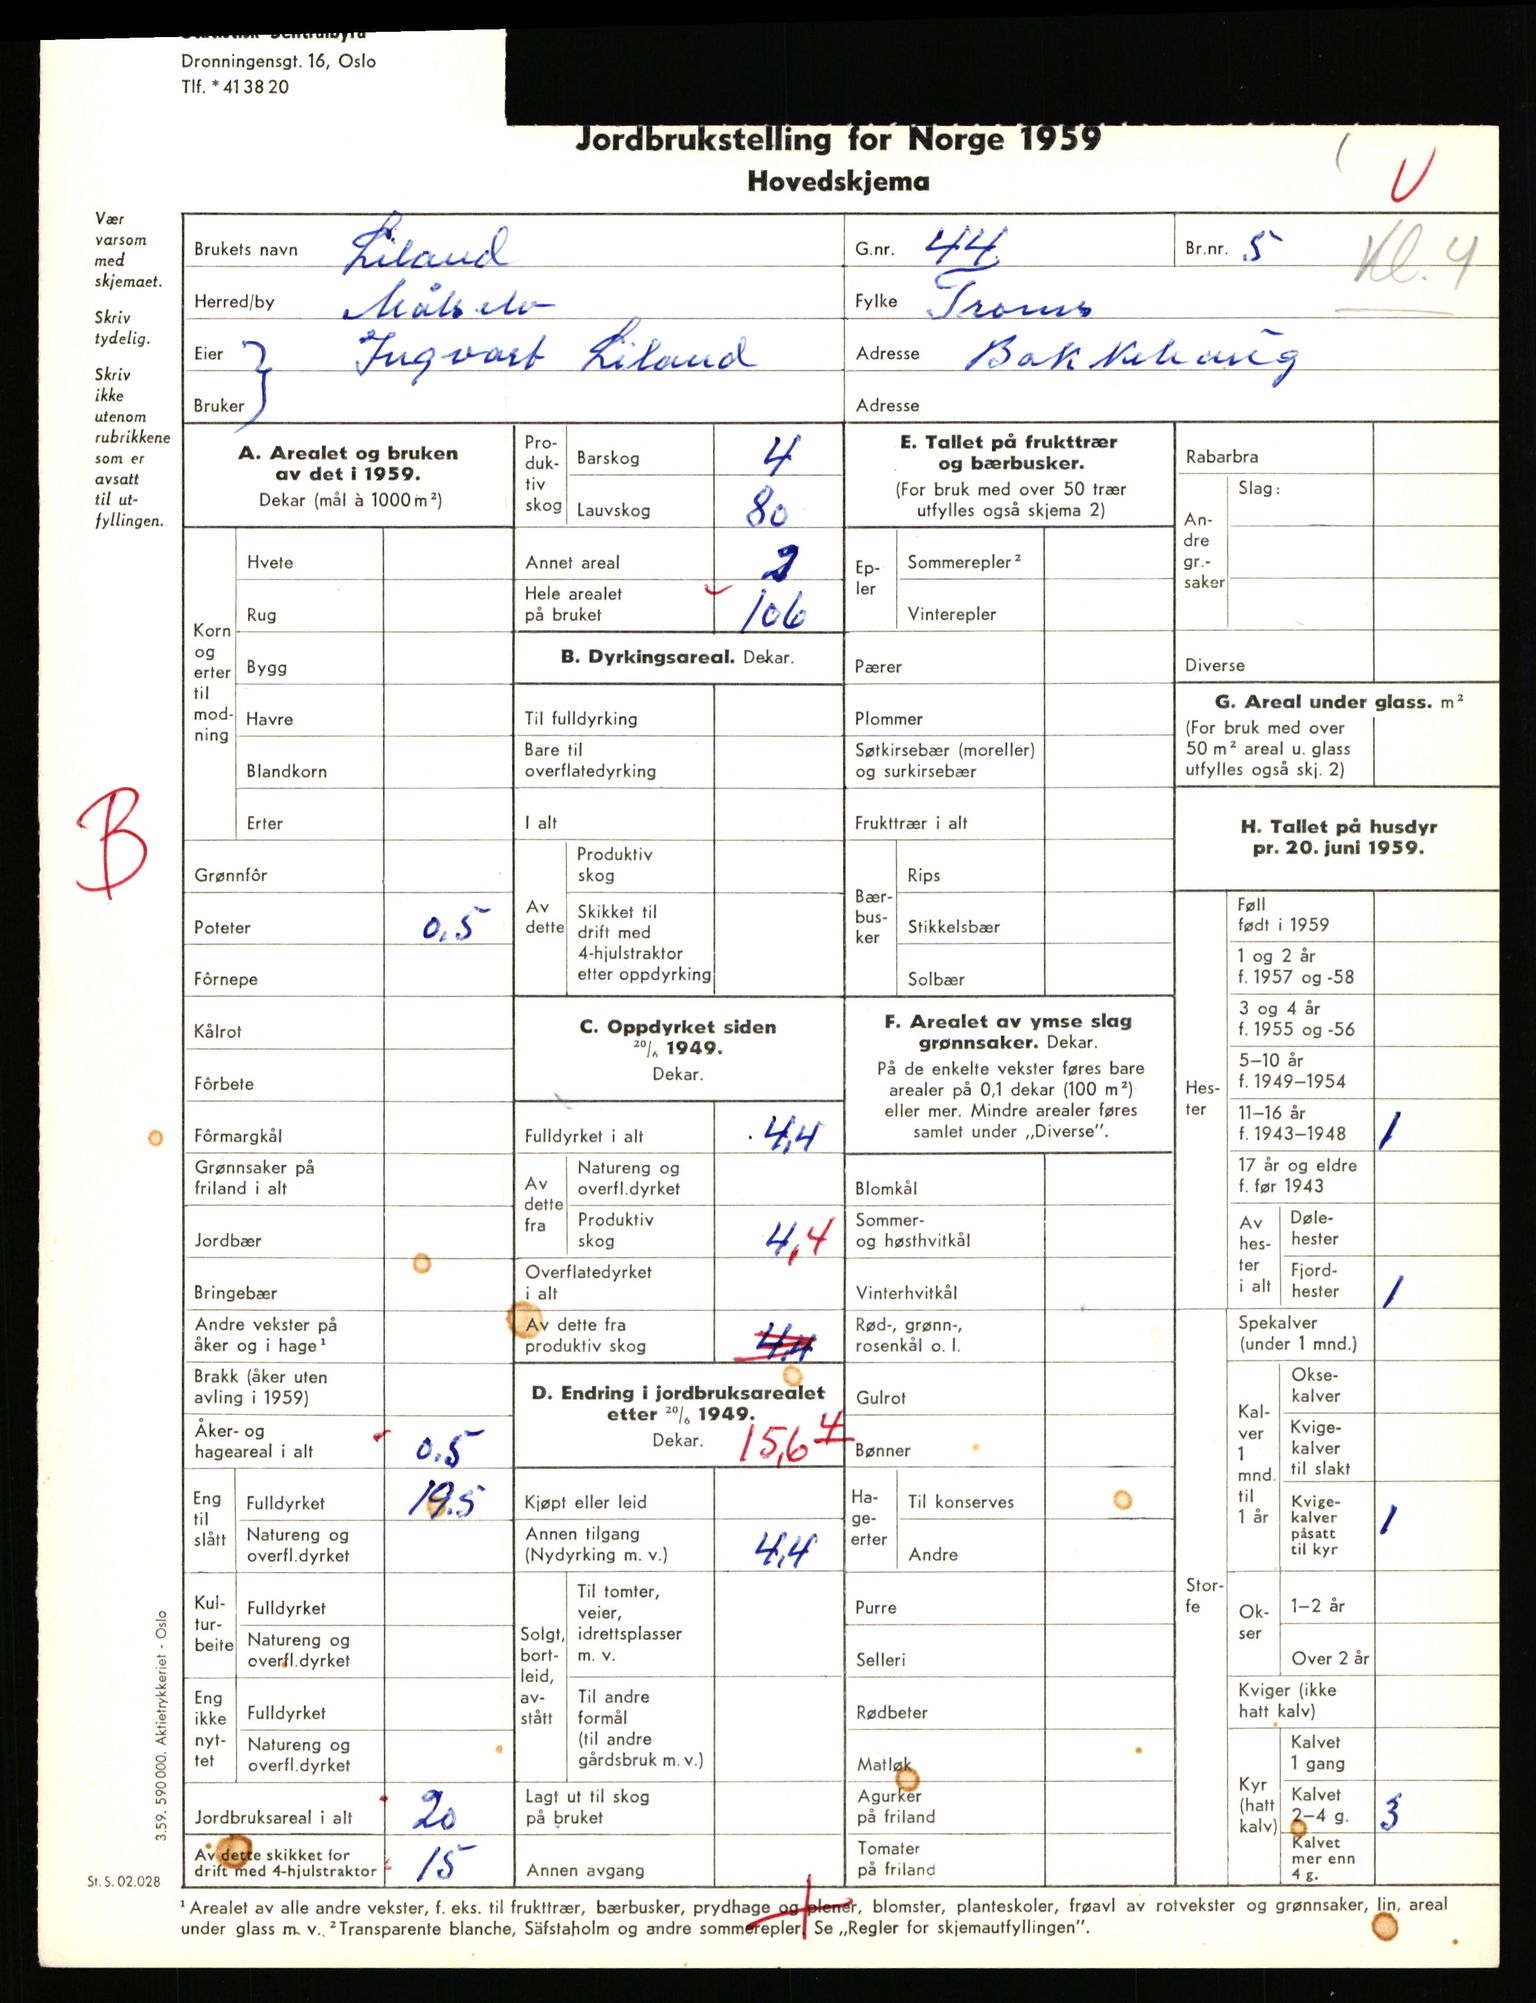 Statistisk Sentralbyrå
Dronningensgt. 16, Oslo
Tlf. * 41 38 20
Jordbrukstelling for Norge 1959
Hovedskjema
U
Vær
varsom
med
skjemaet.
Skriv
tydelig.
Skriv
ikke
utenom
rubrikkene
som er
avsatt
til ut-
fyllingen.
Brukets navn Liland G.nr. 44 Br.nr. 5
Kl. 4
Herred/by Målselv Fylke Troms
Eier Ingvart Liland Adresse Bakkehaug
Bruker Adresse
A. Arealet og bruken
av det i 1959.
Dekar (mål à 1000 m²)
Korn
og
erter
til
mod-
ning
Hvete
Rug
Bygg
Havre
Blandkorn
Erter
Grønnfôr
Poteter 0,5
Fôrnepe
Kålrot
Fôrbete
Fôrmargkål
Grønnsaker på
friland i alt
Jordbær
Bringebær
Andre vekster på
åker og i hage¹
Brakk (åker uten
avling i 1959)
Åker- og
hageareal i alt 0.5
Eng
til
slått
Fulldyrket 19.5
Natureng og
overfl.dyrket
Kul-
tur-
beite
Fulldyrket
Natureng og
overfl.dyrket
Eng
ikke
nyt-
tet
Fulldyrket
Natureng og
overfl.dyrket
Jordbruksareal i alt 20
Av dette skikket for
drift med 4-hjulstraktor 15
Pro-
duk-
tiv
skog
Barskog 4
Lauvskog 80
Annet areal 2
Hele arealet
på bruket 106
B. Dyrkingsareal. Dekar.
Til fulldyrking
Bare til
overflatedyrking
I alt
Av
dette
Produktiv
skog
Skikket til
drift med
4-hjulstraktor
etter oppdyrking
C. Oppdyrket siden
20/6 1949.
Dekar.
Fulldyrket i alt 4,4
Av
dette
fra
Natureng og
overfl.dyrket
Produktiv
skog 4,4
Overflatedyrket
i alt
Av dette fra
produktiv skog 4,4
D. Endring i jordbruksarealet
etter 20/6 1949.
Dekar. 15,6 4
Kjøpt eller leid
Annen tilgang
(Nydyrking m. v.) 4,4
Solgt,
bort-
leid,
av-
stått
Til tomter,
veier,
idrettsplasser
m. v.
Til andre
formål
(til andre
gårdsbruk m. v.)
Lagt ut til skog
på bruket
Annen avgang
E. Tallet på frukttrær
og bærbusker.
(For bruk med over 50 trær
utfylles også skjema 2)
Ep-
ler
Sommerepler²
Vinterepler
Pærer
Plommer
Søtkirsebær (moreller)
og surkirsebær
Frukttrær i alt
Bær-
bus-
ker
Rips
Stikkelsbær
Solbær
F. Arealet av ymse slag
grønnsaker. Dekar.
På de enkelte vekster føres bare
arealer på 0,1 dekar (100 m²)
eller mer. Mindre arealer føres
samlet under „Diverse”.
Blomkål
Sommer-
og høsthvitkål
Vinterhvitkål
Rød-, grønn-,
rosenkål o. l.
Gulrot
Bønner
Ha-
ge-
erter
Til konserves
Andre
Purre
Selleri
Rødbeter
Matløk
Agurker
på friland
Tomater
på friland
Rabarbra
An-
dre
gr.-
saker
Slag:
Diverse
G. Areal under glass. m²
(For bruk med over
50 m² areal u. glass
utfylles også skj. 2)
H. Tallet på husdyr
pr. 20. juni 1959.
Hes-
ter
Føll
født i 1959
1 og 2 år
f. 1957 og -58
3 og 4 år
f. 1955 og -56
5–10 år
f. 1949–1954
11–16 år
f. 1943–1948 1
17 år og eldre
f. før 1943
Av
hes-
ter
i alt
Døle-
hester
Fjord-
hester 1
Stor-
fe
Spekalver
(under 1 mnd.)
Kal-
ver
1
mnd.
til
1 år
Okse-
kalver
Kvige-
kalver
til slakt
Kvige-
kalver
påsatt
til kyr 1
Ok-
ser
1–2 år
Over 2 år
Kviger (ikke
hatt kalv)
Kyr
(hatt
kalv)
Kalvet
1 gang
Kalvet
2–4 g. 3
Kalvet
mer enn
4 g.
B
3.59. 590 000. Aktietrykkeriet - Oslo
St. S. 02.028
¹ Arealet av alle andre vekster, f. eks. til frukttrær, bærbusker, prydhage og plener, blomster, planteskoler, frøavl av rotvekster og grønnsaker, lin, areal
under glass m. v. ² Transparente blanche, Säfstaholm og andre sommerepler. Se „Regler for skjemautfyllingen”.